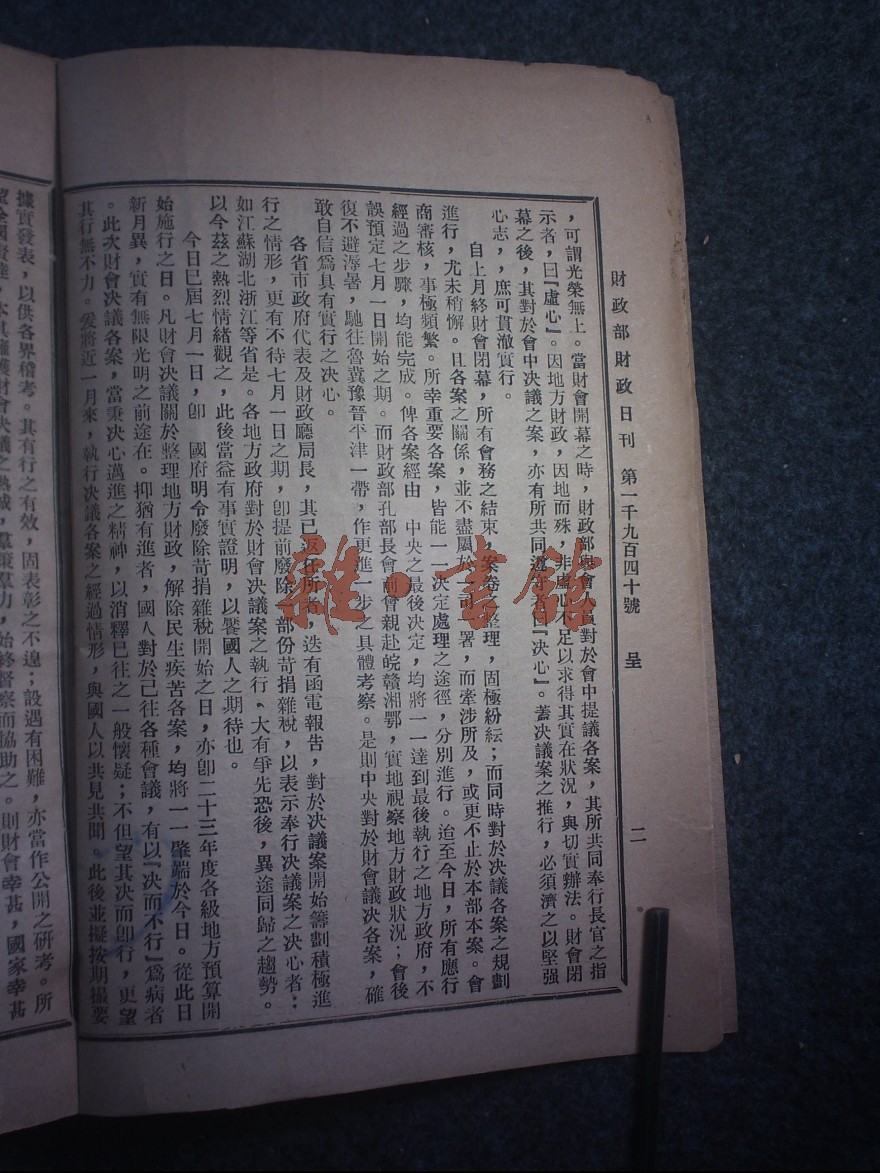 財政部財政日刊　第一千九百四十號　呈　二
，可謂光榮無上。當財會開幕之時，財政部與會人員對於會中提議各案，其所共同奉行長官之指
示者，曰『虛心』。因地方財政，因地而殊，非虛心不足以求得其實在狀況，與切實辦法。財會閉
幕之後，其對於會中決議之案，亦有所共同遵守者曰『决心』。蓋决議案之推行，必須濟之以堅强
心志，，庶可貫澈實行。
自上月終財會閉幕，所有會務之結束，案卷之整理，固極紛紜；而同時對於决議各案之規劃
進行，尤未稍懈。且各案之關係，並不盡屬於一司一署，而牽涉所及，或更不止於本部本案。會
商審核，事極頻繁。所幸重要各案，皆能一一決定處理之途徑，分別進行。迨至今日，所有應行
經過之步驟，均能完成。俾各案經由　中央之最後決定，均將一一達到最後執行之地方政府，不
誤預定七月一日開始之期。而財政部孔部長會前會親赴皖贛湘鄂，實地視察地方財政狀況；會後
復不避溽暑，馳往魯冀豫晉平津一帶，作更進一步之具體考察。是則中央對於財會議決各案，確
敢自信爲具有實行之决心。
各省市政府代表及財政廳局長，其已返任所者，迭有函電報告，對於决議案開始籌劃積極進
行之情形，更有不待七月一日之期，卽提前廢除一部份苛捐雜稅，以表示奉行決議案之决心者：
如江蘇湖北浙江等省是。各地方政府對於財會決議案之執行、大有爭先恐後，異途同歸之趨勢。
以今茲之熱烈情緒觀之，此後當益有事實證明，以饜國人之期待也。
今日已屆七月一日，卽　國府明令廢除苛捐雜稅開始之日，亦卽二十三年度各級地方預算開
始施行之日。凡財會決議關於整理地方財政，解除民生疾苦各案，均將一一肇端於今日。從此日
新月異，實有無限光明之前途在。抑猶有進者，國人對於已往各種會議，有以『決而不行』爲病者
。此次財會决議各案，當秉决心邁進之精神，以消釋已往之一般懷疑；不但望其决而卽行，更望
其行無不力。爰將近一月來，執行决議各案之經過情形，與國人以共見共聞。此後並擬按期撮要
據實發表，以供各界稽考。其有行之有效，固表彰之不遑；設遇有困難，亦當作公開之研考。所
本其擁護財會决議之熱誠，羣策羣力，始終督察而協助之。則財會幸甚，國家幸甚
雜·書館